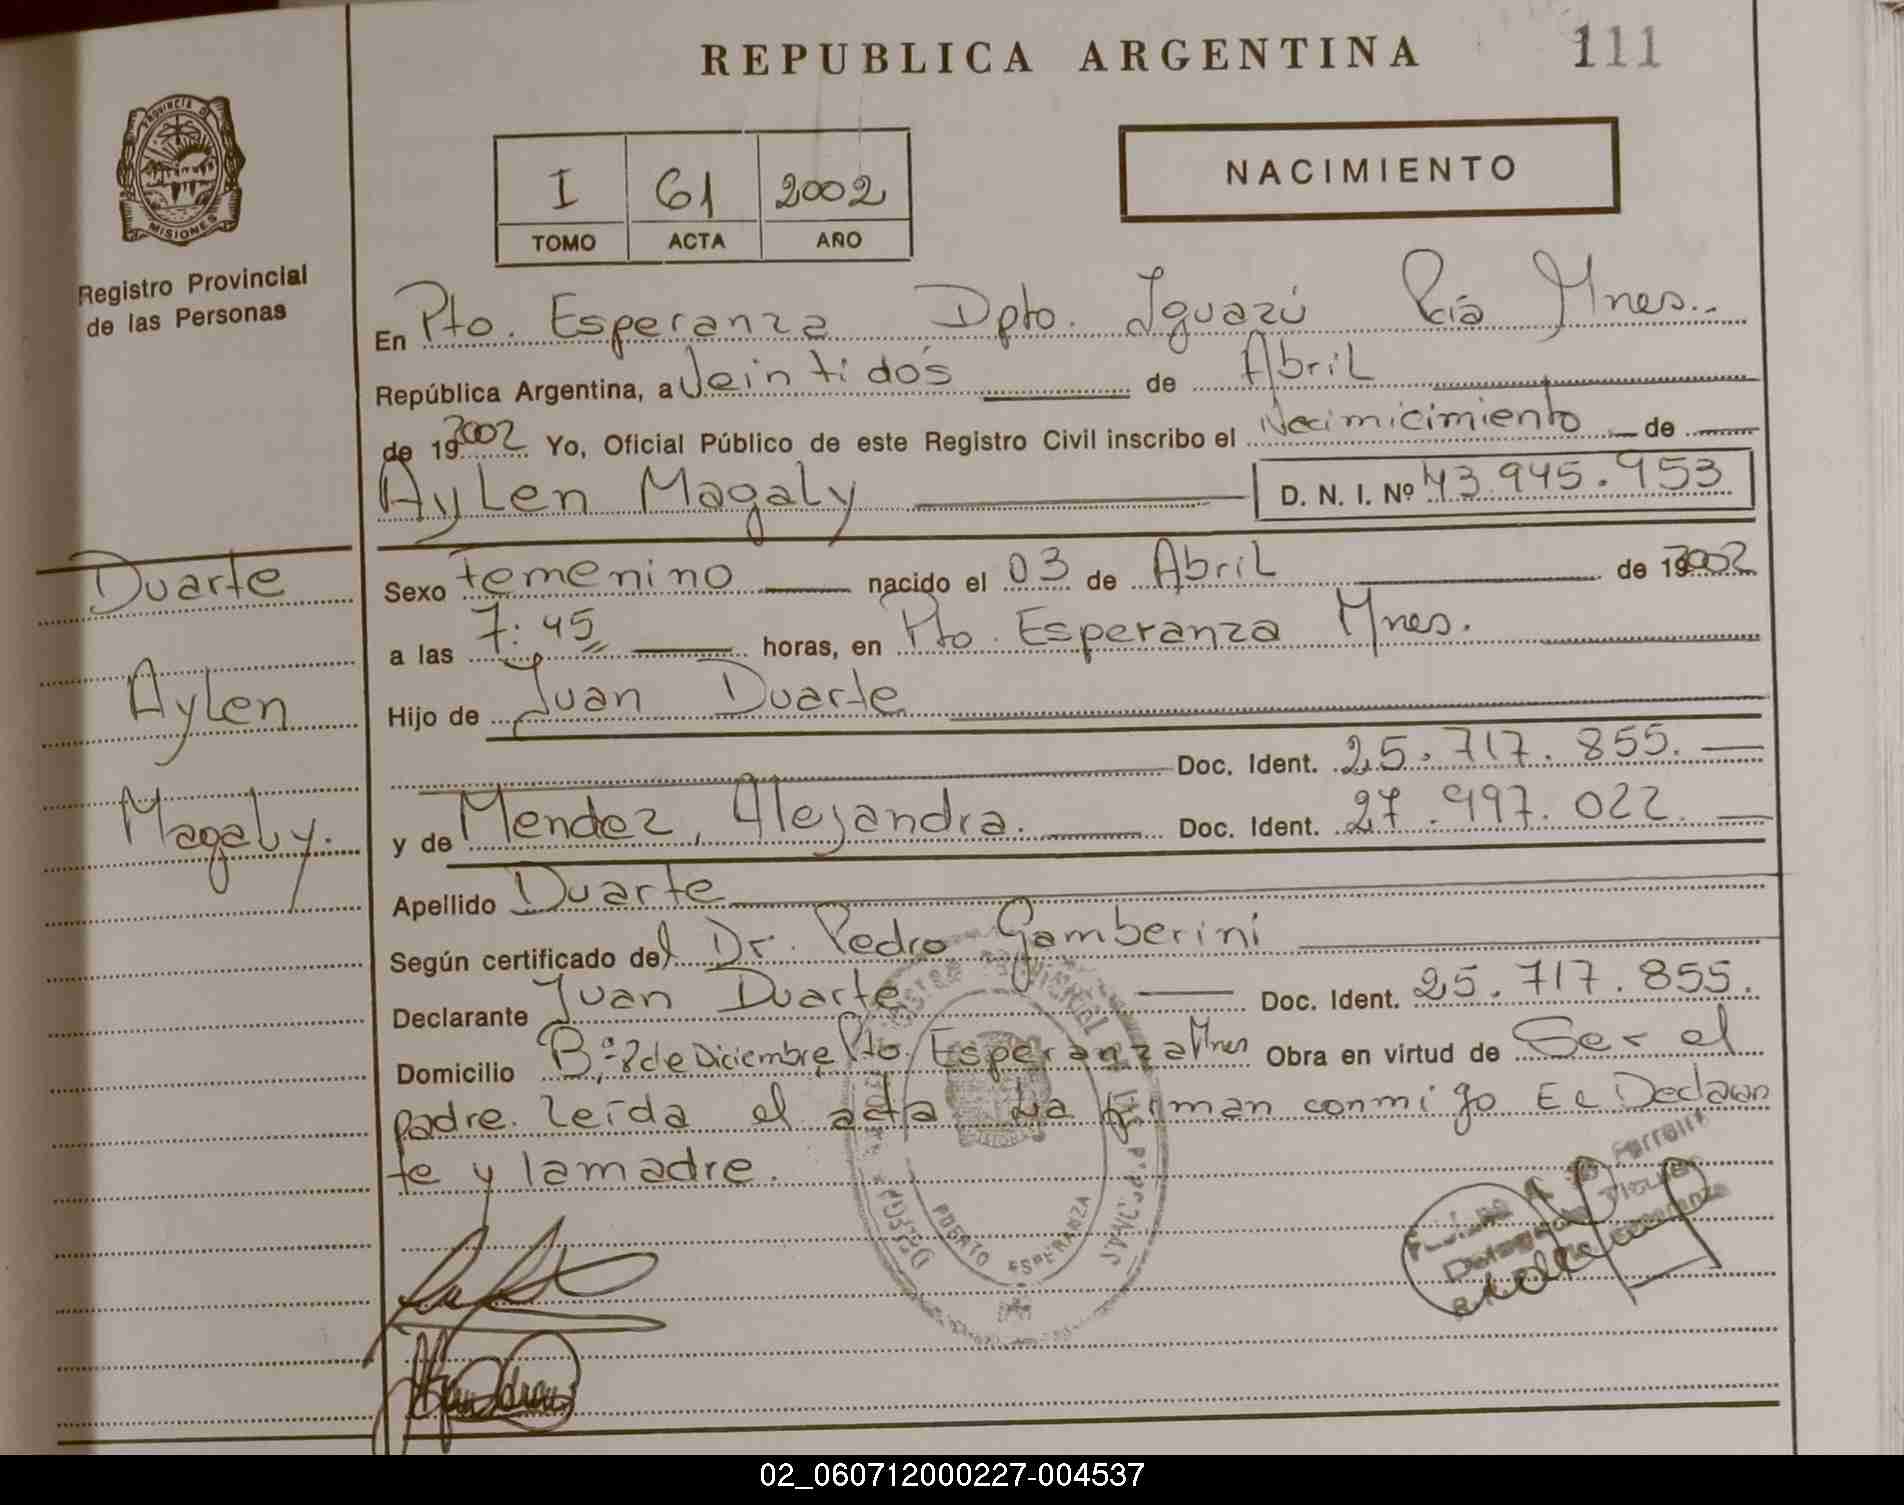 REPUBLICA ARGENTINA 111
PROVINCIA D
MISIONES
Registro Provincial
de las Personas
I 61 2002
TOMO ACTA AÑO
NACIMIENTO
En Pto. Esperanza Dpto. Iguazú Pcia Mnes.
República Argentina, a Veintidós de Abril
de 19 2002 Yo, Oficial Público de este Registro Civil inscribo el Necimicimiento de
Aylen Magaly D. N. I. Nº 43.945.953
Duarte
Aylen
Magaly.
Sexo Femenino nacido el 03 de Abril de 19 2002
a las 7:45 horas, en Pto. Esperanza Mnes.
Hijo de Juan Duarte
Doc. Ident. 25.717.855.
y de Mendez, Alejandra. Doc. Ident. 27.997.022
Apellido Duarte
Según certificado del Dr. Pedro Gamberini
Declarante Juan Duarte Doc. Ident. 25.717.855.
Domicilio Bº, 8 de Diciembre, Pto. Esperanza Mnes Obra en virtud de Ser el
padre. Leída el acta La firman conmigo El Declaran
te y la madre.
PUERTO ESPERANZA
02_060712000227-004537